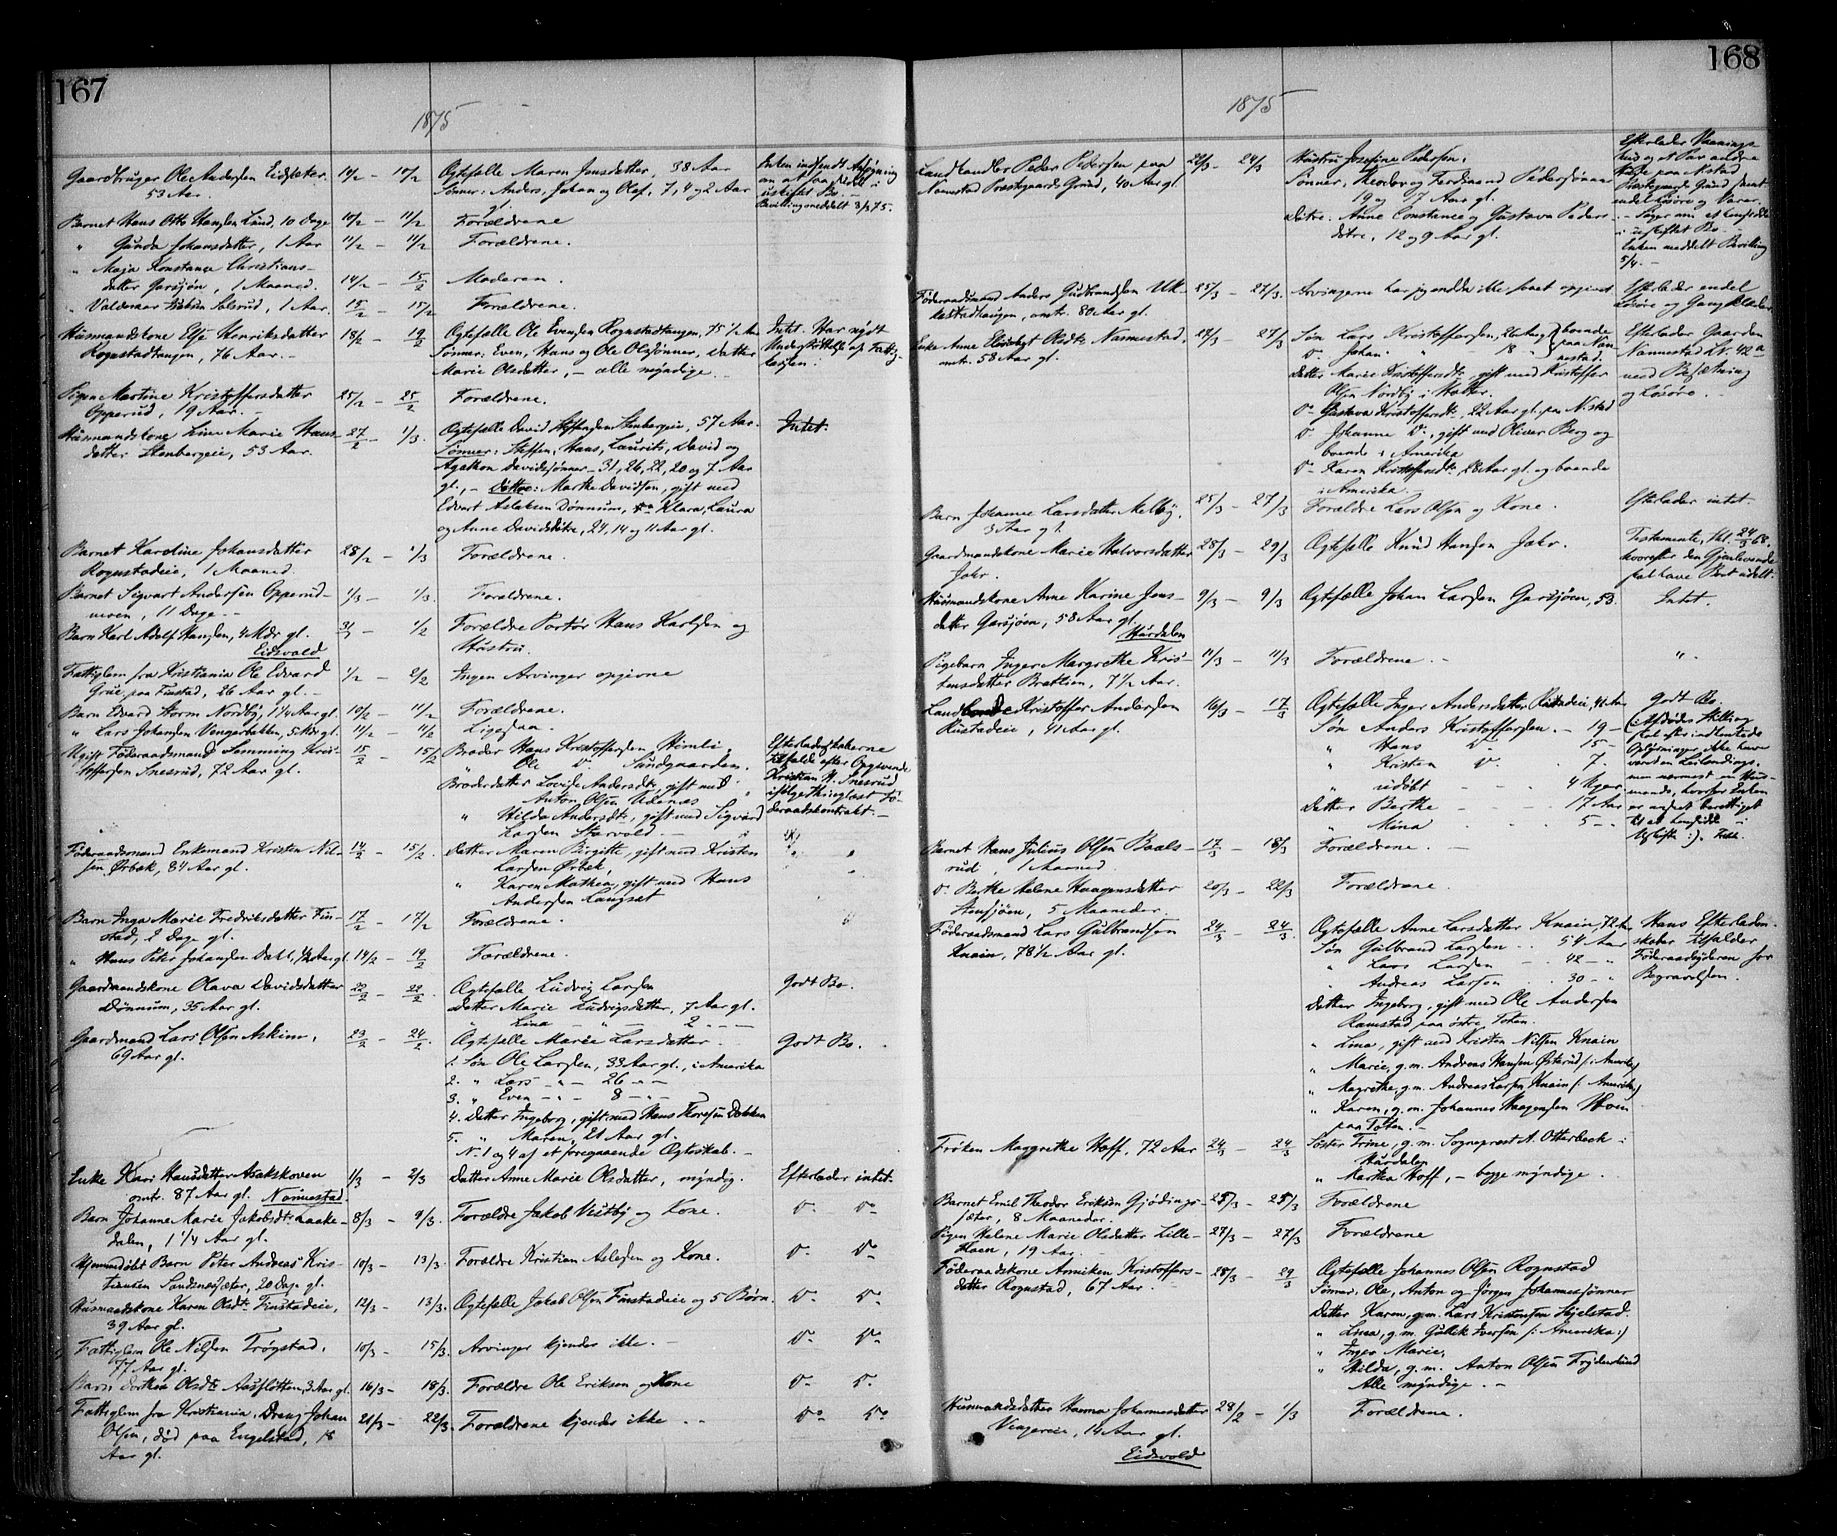 167
1875
Gaardbruger Ole Andersen Eidsæter, 14/2 — 17/2 Ægtefælle Maren Jensdatter, 38 Aar
53 Aar. Sønner: Anders, Johan og Olaf, 7, 4 og 2 Aar
gl.
Enken indsendt Ansøgning
om at faa sidde i
uskiftet Bo.
Bevilling meddelt 3/3 75.
Barnet Hans Otto Hansen Lund, 10 Dage 11/2 Forældrene
" Gunda Johansdatter, 1 Aar 11/2 — 11/2 Forældrene.
" Maja Konstance Christians-
datter Garsjøn, 1 Maaned. 14/2 — 15/2 Moderen.
" Valdemar Solerud, 1 Aar. 15/2 — 15/2 Forældrene.
Husmandskone Else Henriksdatter 18/2 — 19/2 Ægtefælle Ole Evensen Rognstadtangen, 75 1/2 Aar Intet. Har nydt
Rognstadtangen, 76 Aar. — Sønner: Even, Hans og Ole Olssønner, Datter Understøttelse af Fattig-
Marie Olsdatter, — alle myndige. kassen.
Pigen Martine Kristoffersdatter 25/2 — 25/2 Forældrene.
Opperud, 19 Aar. —
Husmandskone Line Marie Hans- 27/2 — 1/3. Ægtefælle David Steffensen Stenbergeie, 57 Aar. Intet.
datter Stenbergeie, 53 Aar. Sønner: Steffen, Hans, Laurits, David og
Agathon Davidssønner — 31, 26, 22, 20 og 7 Aar
gl., — Døttre: Marthe Davidsen, gift med
Edvart Aslaksen Dønnum, Klara, Laura
og Anne Davidsdtre, 24, 14 og 11 Aar gl.
Barnet Karoline Johansdatter 28/2 — 1/3 Forældrene.
Rognstadeie, 1 Maaned.
Barnet Sigvart Andersen Opperud- 1/3 — 1/3. Forældrene.
moen, 11 Dage. —
Barn Karl Adolf Hansen, 4 Mdr gl. 31/1 — 1/2 Forældre Portør Hans Karlsen og
Eidsvold Hustru.
Fattiglem fra Kristiania Ole Edvard 1/2 — 2/2 Ingen Arvinger opgivne
Grue, paa Finstad, 26 Aar gl. —
Barn Edvard Storm Nordby, 1 1/4 Aar gl. 10/2 — 11/2 Forældrene.
" Lars Johansen Vengerbakken, 5 Mdr gl. 11/2 — 11/2 Ligesaa.
Ugift Føderaadsmand Lemming Kris- 15/2 — 15/2 Broder Hans Kristoffersen Himli, Efterladenskaberne
toffersen Snesrud, 72 Aar gl. " Ole Do Sundgaarden. tilfalde efter Opgivende
Broderdatter Lovise Andersdtr, gift med Kristian H. Snesrud
Anton Olsen Udenæs ifølge thinglæst Fø-
" Hilda Andersdtr, gift med Sigvard deraadskontrakt. —
Larsen Starvold. —
Føderaadsmand Enkemand Kristen Nil- 14/2 — 15/2. Datter Maren Birgitte, gift med Kristen " "
sen Ørbæk, 84 Aar gl. Larsen Ørbæk,
" Karen Mathea, gift med Hans
Andersen Langset
Barn Inga Marie Fredriksdatter Fin- 17/2 — 17/2 Forældrene. "
stad, 2 Dage gl.
" Hans Peter Johansen Dahl, 1/2 Aar gl. 14/2 — 19/2 Forældrene.
Gaardmandskone Olava Davidsdatter 20/2 — 22/2. Ægtefælle Ludvig Larsen Godt Bo.
Dønnum, 35 Aar gl. Datter Marie Ludvigsdatter, 7 Aar gl.
" Lina — " — 2 — —
Gaardmand Lars Olsen Askim, 23/2 — 24/2 Ægtefælle Marie Larsdatter. Godt Bo.
69 Aar gl. 1. Søn Ole Larsen, 33 Aar gl., i Amerika
2. " Lars — " — 26 — " —
3. " Even — " — 8 — " —
4. Datter Ingeborg, gift med Hans Thoresen Dokken
5. " Maren, 21 Aar gl.
No 1 og 4 af et foregaaende Ægteskab. —
Enke Kari Hansdatter Asakskoven 1/3 — 2/3 Datter Anne Marie Olsdatter, myndig. Efterlader intet.
omtr. 87 Aar gl. Nannestad.
Barn Johanne Marie Jakobsdtr Laake- 8/3 — 9/3. Forældre Jakob Veitby og Kone. Do Do
dalen, 1 1/4 Aar gl.
Hjemmedøbt Barn Peter Andreas Kris- 10/3 — 13/3. Forældre Kristian Aslesen og Kone. Do Do
tiansen Sandsnessæter, 20 Dage gl.
Husmandskone Karen Olsdtr Finstadeie, 12/3 — 13/3. Ægtefælle Jakob Olsen Finstadeie og 5 Børn. Do Do
39 Aar gl.
Fattiglem Ole Nilsen Trøgstad, 10/3 — 15/3. Arvinger kjendes ikke. — Do Do
77 Aar gl.
Barn Olsdtr Aasflotten, 3 Aar gl. 16/3 — 18/3. Forældre Ole Eriksen og Kone Do Do
Fattiglem fra Kristiania, Dreng Johan 21/3 — 22/3. Forældrene kjendes ikke — Do Do
Olsen, død paa Engelstad, 18
Aar gl.
168
1875
Landhandler Peder Pedersen paa 20/3 — 24/3 Hustru Josefine Pedersen.
Nannestad Præstegaards Grund, 40 Aar gl. Sønner, Theodor og Ferdinand Pedersønner
19 og 17 Aar gl.
Døtre: Anne Constance og Gustava Peders-
døtre, 12 og 9 Aar gl.
Efterlader Vaanings-
hus og et Par andre
Huse paa Nstad
Præstegaards Grund samt
endel Løsøre og Varer.
— Søger om at hensidde
i uskiftet Bo. —
Enken meddelt Bevilling
5/4. —
Føderaadsmand Anders Gudbrandsen 25/3 — 27/3. Arvingerne har jeg endda ikke faaet opgivet Efterlader endel
omtr. 80 Aar gl. Løsøre og Gangklæder
Enke Anne Olsdtr Nannestad, 24/3 — 27/3 Søn Lars Kristoffersen, 26 Aar boende Efterlader Gaarden
omtr. 58 Aar gl. Do Johan " 18 " paa Nan- Nannestad LN. 42a
nestad. med Besætning
Datter Marie Kristoffersdtr, gift med Kristoffer og Løsøre. —
Olsen Nordby i Holter.
Do Gustava Kristoffersdtr, 22 Aar gl. paa Nstad
Do Johanne Do, gift med Oliver Berg og
boende i Amerika
Do Karen Kristoffersdtr, 28 Aar gl. og boende
i Amerika.
Barn Johanne Larsdatter Melby, 25/3 — 27/3 Forældre Lars Olsen og Kone. Efterlader intet.
3 Aar gl.
Gaardmandskone Marie Halvorsdatter 25/3 — 29/3 Ægtefælle Knud Hansen Jahr. Testamente, thl. 24/3 68.
Jahr. hvorefter den Gjenlevende
skal have Boet udelt.
Husmandskone Anne Karine Jens- 9/3 — 9/3 Ægtefælle Johan Larsen Garsjøen, 53. Intet.
datter Garsjøen, 58 Aar gl.
Hurdalen
Pigebarn Inger Margrethe Kris- 11/3 — 11/3 Forældrene. — " .
tensdatter Brætlien, 7 1/2 Aar.
Kristoffer Andersen 16/3 — 17/3 Ægtefælle Inger Andersdatter Rustadeie, 41 Aar Godt Bo.
Rustadeie, 41 Aar gl. Søn Anders Kristoffersen. — 19 —
" Hans Do 15 —
" Kristen Do 7.
" udøbt — 4 Uger
Datter Berthe — — — 17 Aar
" Mina — 5 —
Barnet Hans Julius Olsen Baals- 17/3 — 18/3 Forældrene. —
rud, 1 Maaned
Do Berthe Helene Haagensdatter 20/3 — 22/3 Forældrene.
Stensjøen, 5 Maaneder.
Føderaadsmand Lars Gulbrandsen 24/3 — 24/3. Ægtefælle Anne Larsdatter Knain, 72 Aar Hans Efterladen-
Knain, 78 1/2 Aar gl. Søn Gulbrand Larsen — 54 Aar skaber tilfalder
" Lars Larsen — 42 — " Føderaadyderen for
" Andreas Larsen . 30 — . Begravelsen.
Datter Ingeborg, gift med Ole Andersen
Ramstad paa østre Toten.
" Lina, gift med Kristen Nilsen Knain
" Marie, g. m. Andreas Hansen Østerud (: i Amerika)
" Magrethe, g. m. Andreas Larsen Knain (: Amerika)
" Karen, g. m. Johannes Haagensen
paa Toten. —
Frøken Maggrethe Hoff, 72 Aar 24/3 — 24/3 Søster Trine, g. m. Sogneprest A. Otterbech i
Hurdalen
" Martha Hoff, — begge myndige.
Barnet Emil Theodor Eriksen Gjødings- 25/3 — 25/3 Forældrene
sæter, 8 Maaneder.
Pigen Helene Marie Olsdatter Lille- 27/3 — 27/3 Forældrene
Hoen, 19 Aar.
Føderaadskone Anniken Kristoffers- 28/3 — 29/3 Ægtefælle Johannes Olsen Rognstad
datter Rognstad, 67 Aar. Sønner: Ole, Anton og Jørgen Johannessønner
Datter Karen, g. m. Lars Kristensen Sjelstad.
" Lina, g. m. Gullik Iversen (: Amerika :)
" Inger Marie,
" Hilda, g. m. Anton Olsen Frydenlund
Alle myndige. —
Husmandsdatter Hanna Johannesdatter 28/2 — 1/3 Forældrene.
Vengereie, 14 Aar gl.
Eidsvold